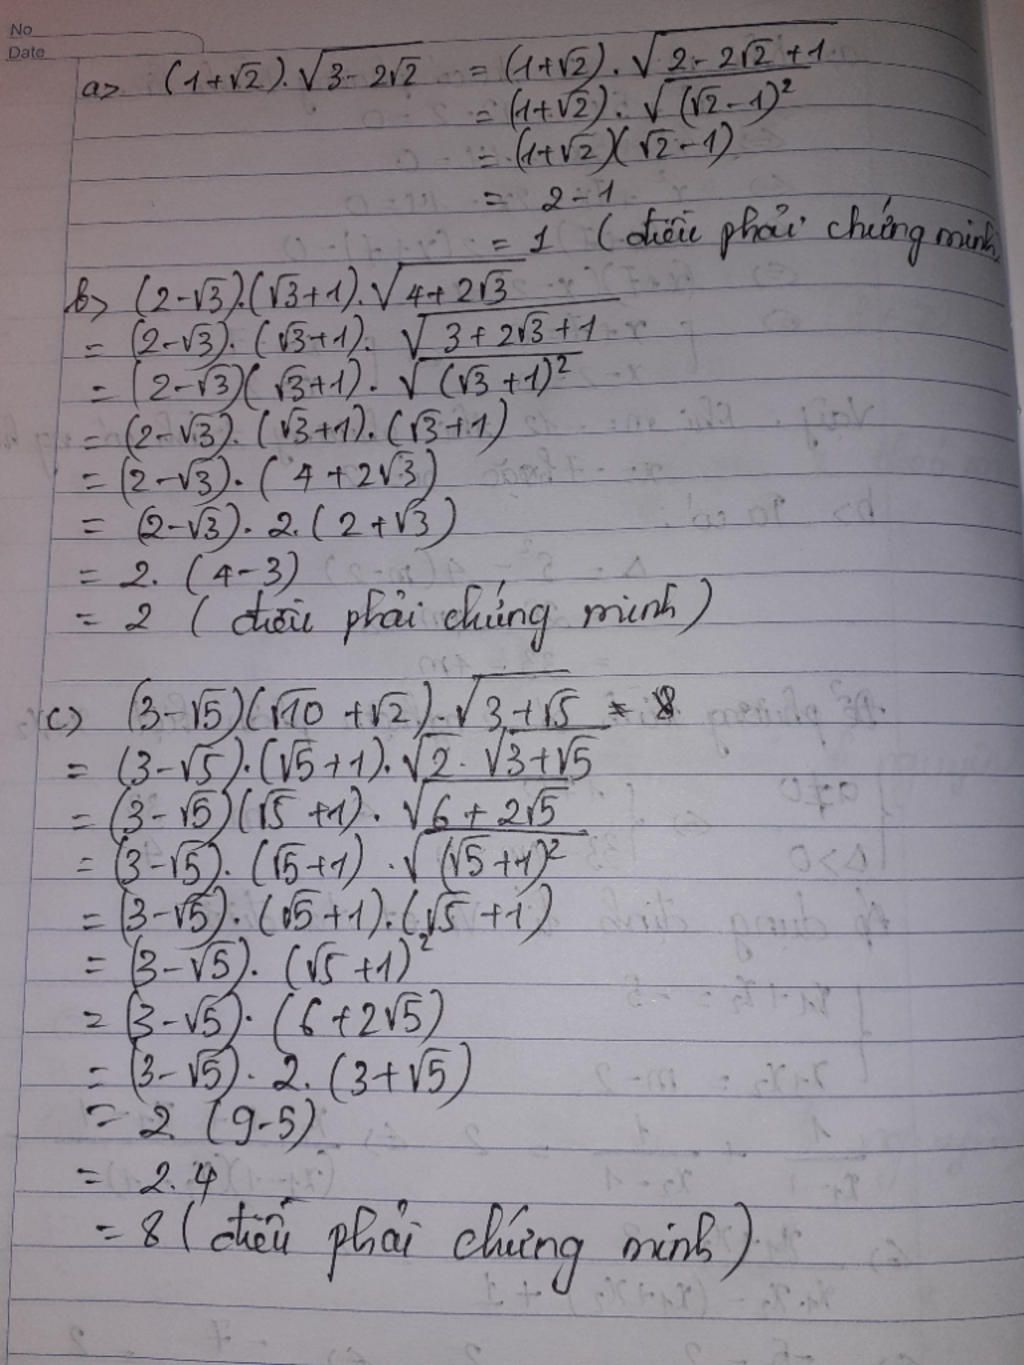 No
Date
a> (1+√2).√(3-2√2) = (1+√2).√(2-2√2+1)
= (1+√2).√((√2-1)²)
= (1+√2)(√2-1)
= 2-1
= 1 (điều phải chứng minh)
b> (2-√3).(√3+1).√(4+2√3)
= (2-√3).(√3+1).√(3+2√3+1)
= (2-√3)(√3+1).√((√3+1)²)
= (2-√3).(√3+1).(√3+1)
= (2-√3).(4+2√3)
= (2-√3).2.(2+√3)
= 2.(4-3)
= 2 (điều phải chứng minh)
c) (3-√5)(√10+√2).√(3+√5) = 8
= (3-√5).(√5+1).√2.√(3+√5)
= (3-√5)(√5+1).√(6+2√5)
= (3-√5).(√5+1).√((√5+1)²)
= (3-√5).(√5+1).(√5+1)
= (3-√5).(√5+1)²
= (3-√5).(6+2√5)
= (3-√5).2.(3+√5)
= 2.(9-5)
= 2.4
= 8 (điều phải chứng minh)